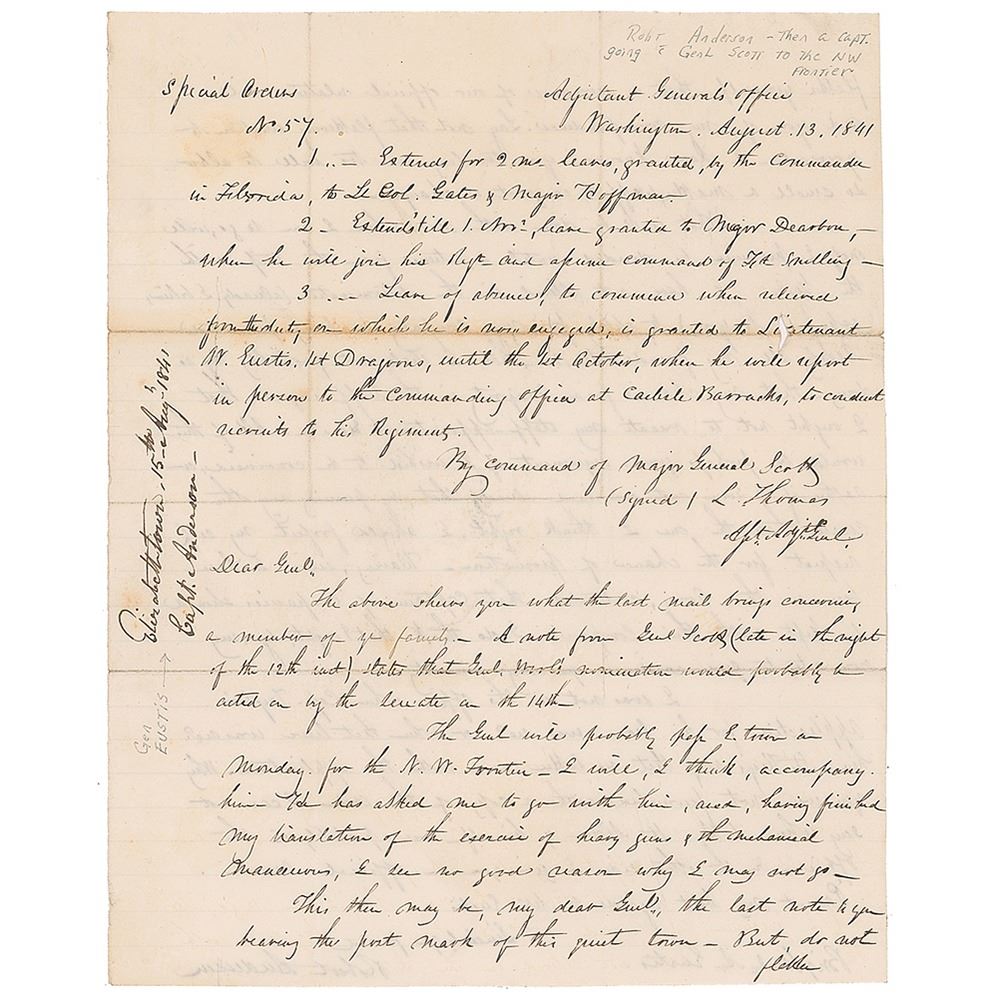 Robt Anderson - Then a Capt.
going c Genl Scott to the NW
Frontier
Special Orders
No. 57.
Adjutant General's Office
Washington. August. 13. 1841
1 .. - Extends for 2 ms leaves, granted, by the Commander
in Florida, to Lt Col. Gates & Major Hoffman -
2 - Extends till 1. Novr, leave granted to Major Dearborn, -
when he will join his Regt and assume command of Ft Snelling -
3 .. - Leave of absence, to commence when relieved
from the duty, on which he is now engaged, is granted to Lieutenant
W. Eustis, 1st Dragoons, until the 1st October, when he will report
in person to the Commanding Officer at Carlisle Barracks, to conduct
recruits to his Regiment.
By command of Major General Scott
(Signed) L. Thomas
Asst. Adjt. Genl.
Elizabethtown, 15th Augt 1841
Capt. Anderson -
Gen
EUSTIS →
Dear Genl.
The above shews you what the last mail brings concerning
a member of yr family. - A note from Genl Scott (late in the night
of the 12th inst) states that Genl. Worth's nomination would probably be
acted on by the Senate on the 14th -
The Genl will probably pass E. town on
Monday. for the N. W. Frontier - I will, I think, accompany.
him - He has asked me to go with him, and, having finished
my translation of the exercise of heavy guns & the mechanical
manoeuvres, I see no good reason why I may not go -
This then may be, my dear Genl., the last note to you
bearing the post mark of this quiet town - But, do not
flatter